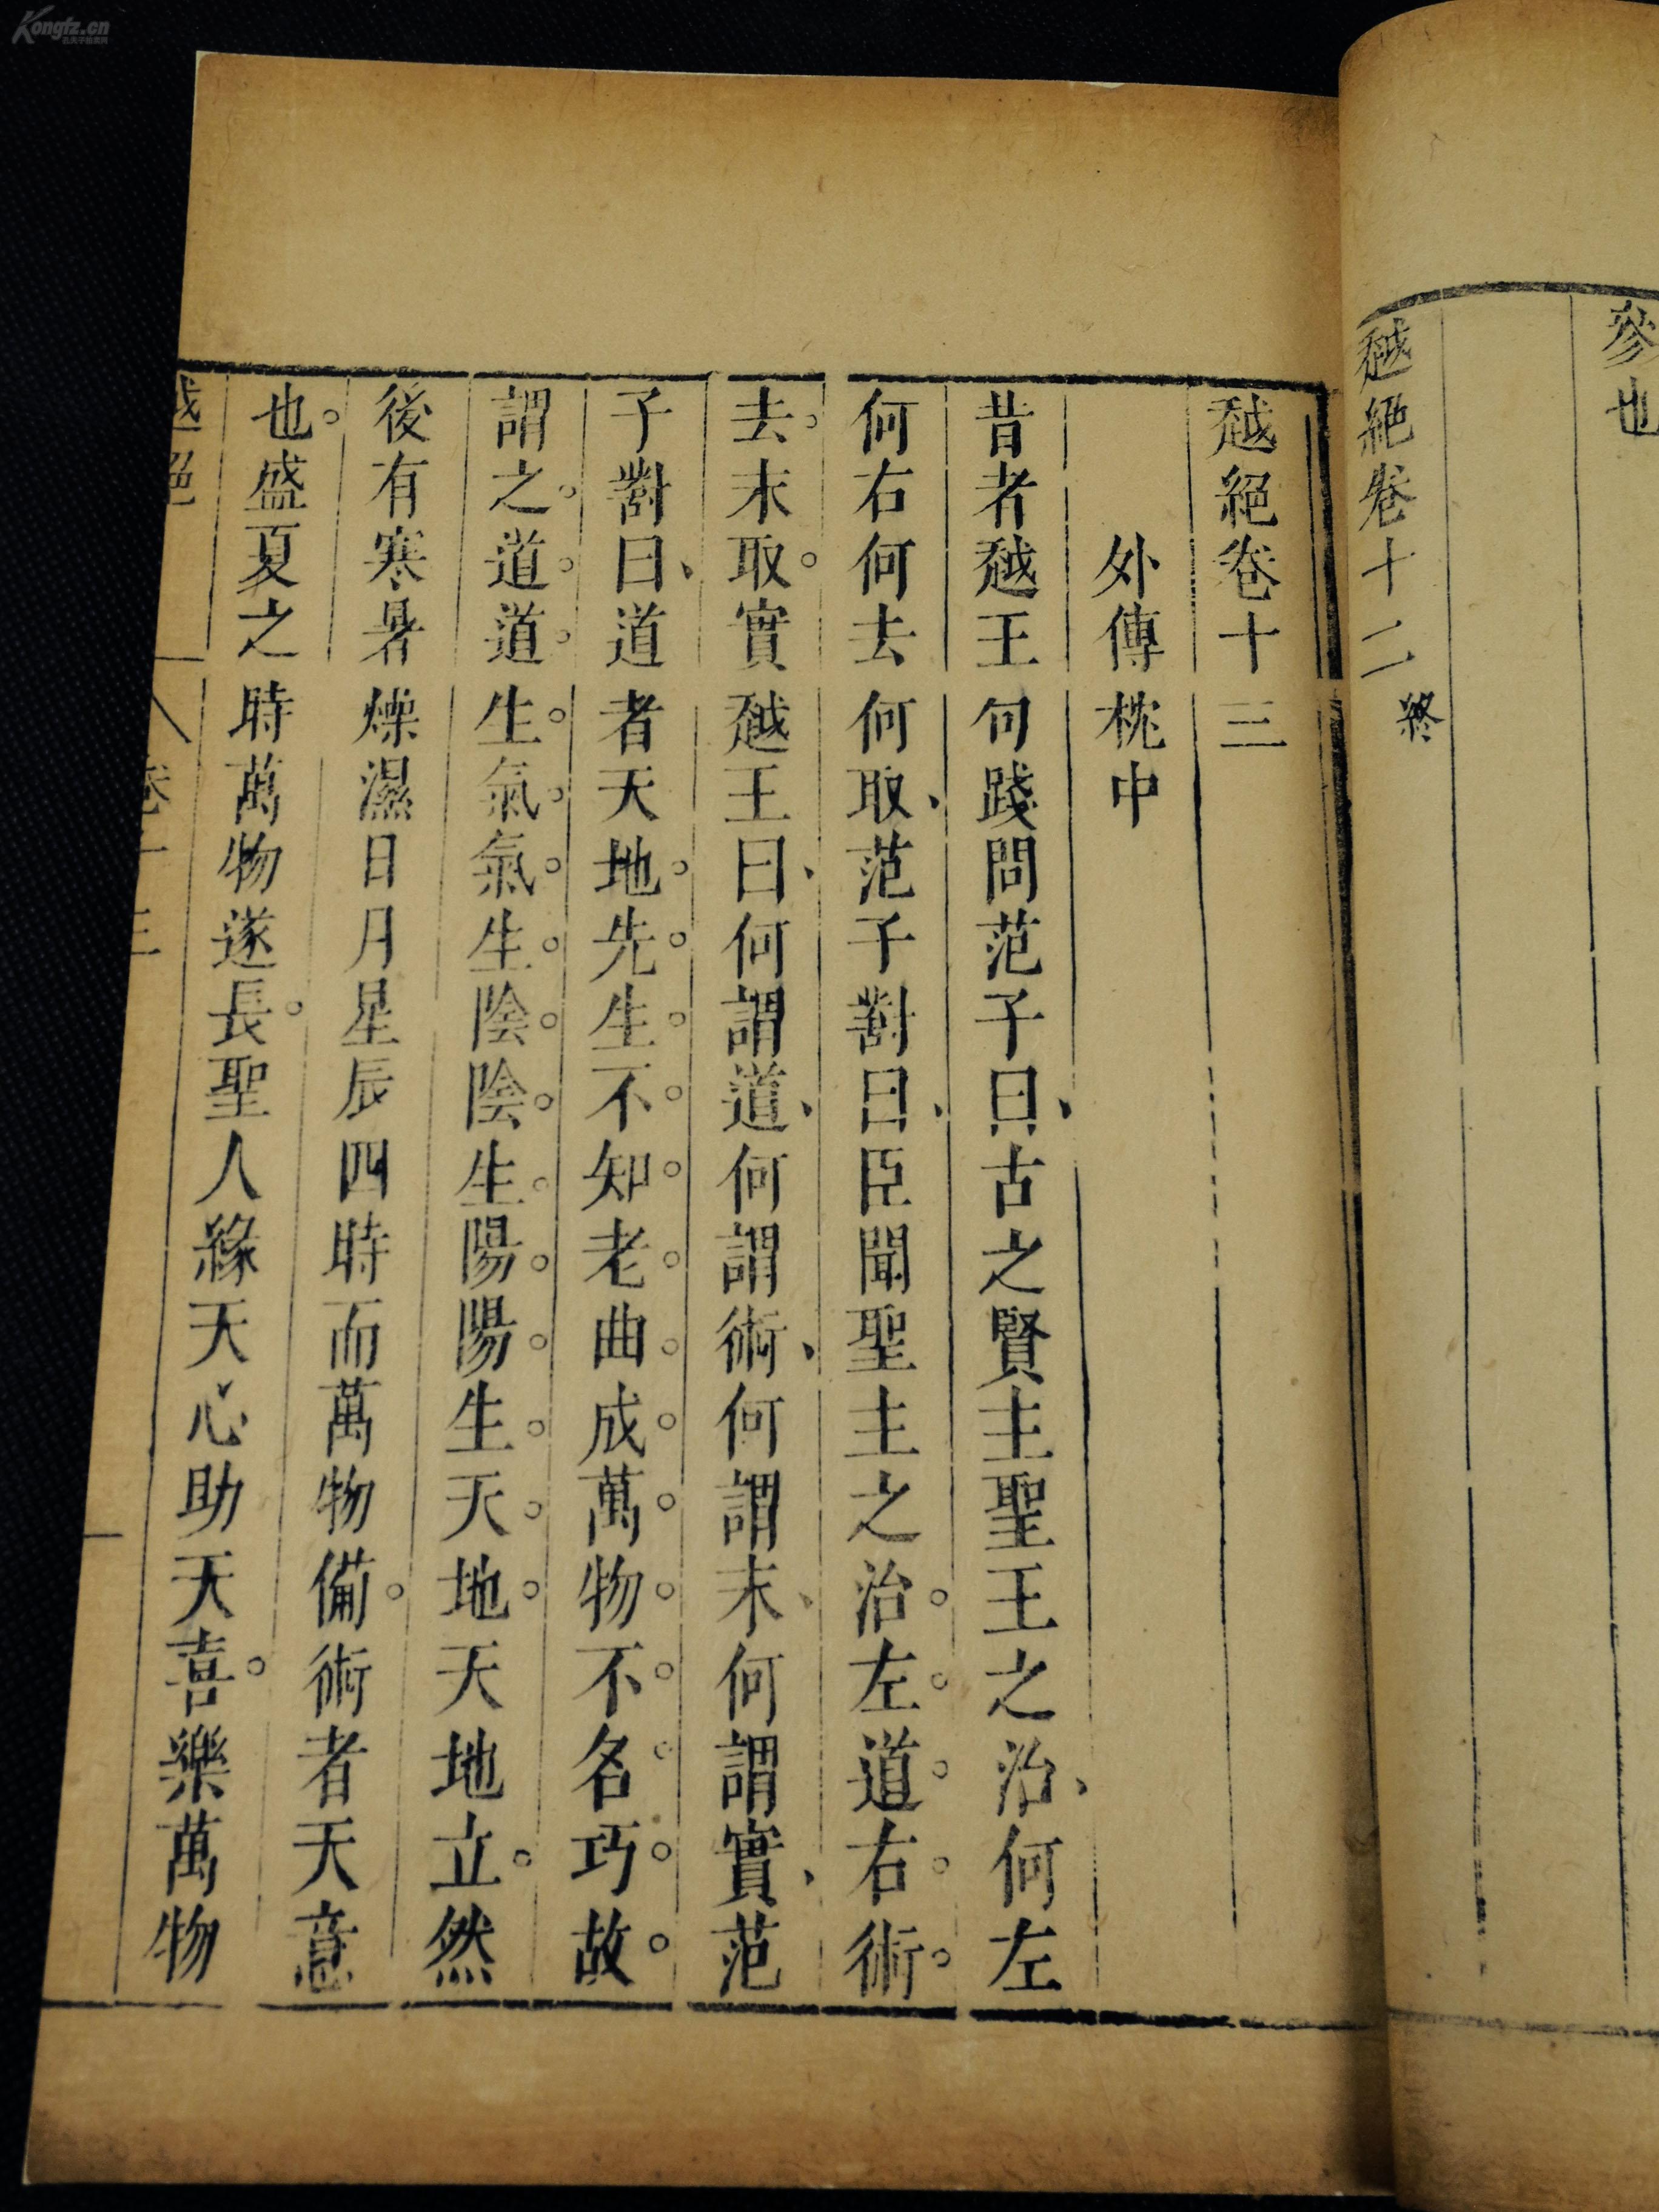 參也
越絕卷十二終
越絕卷十三
外傳枕中
昔者越王句踐問范子曰、古之賢主聖王之治、何左
何右何去何取、范子對曰、臣聞聖主之治。左。道。右。術。
去。末取。實越王曰、何謂道、何謂術、何謂末、何謂實、范
子對曰、道者天地。先。生。不。知。老。曲。成。萬。物。不。名。巧。故。
謂之。道。道。生。氣。氣。生。陰。陰。生。陽。陽。生。天。地。天地立。然
後有寒暑燥濕日月星辰四時而萬物備。術者天意
也。盛夏之時萬物遂長。聖人緣天心助天喜。樂萬物
越絕 卷十三
Kongfz.cn